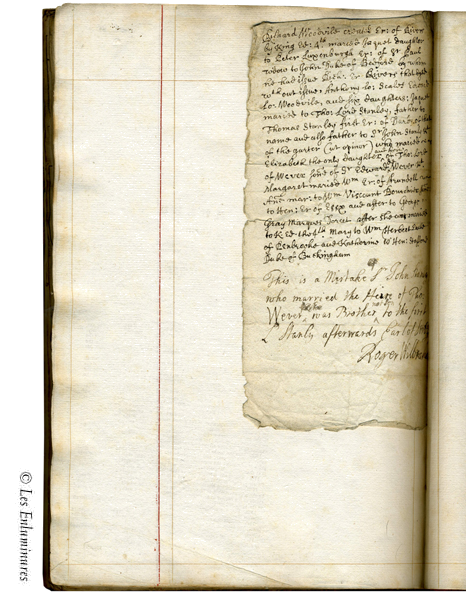 Richard Woodvile created Er: of River
by King Ed: 4th maried Jaquet daughter
to Peter Luxenburgh Er: of St Paul
widow to John Duke of Bedford by whom
he had issue Rich: Er: Rivers that dyed
without issue: Anthony Lo: Scales
Lo: Woodvile, and six daughters: Jaquet
maried to Tho: Lord Stanley, father to
Thomas Stanley first Er: of Darby of that
name and also father to Sr John Stanley
of the garter (ut opinor) who maried
Elizabeth the only daughter of Tho: Lord
of Wever sonne of Sr Edward Wever
Margaret maried Wm Er: of Arundell
Ann mar: to Wm Viscount Bourchier
to Hen: Er: of Essex and after to George
Gray Marques Dorset after she was maried
to K. Ed: the 4th Mary to Wm Herbert Earle
of Penbrooke and Katherine to Hen: Stafford
Duke of Buckingham
This is a Mistake Sr John
who married the Heire of Tho:
Wever was Brother to the first
Ld Stanly afterwards Earl of
Roger Williams
© Les Enluminures